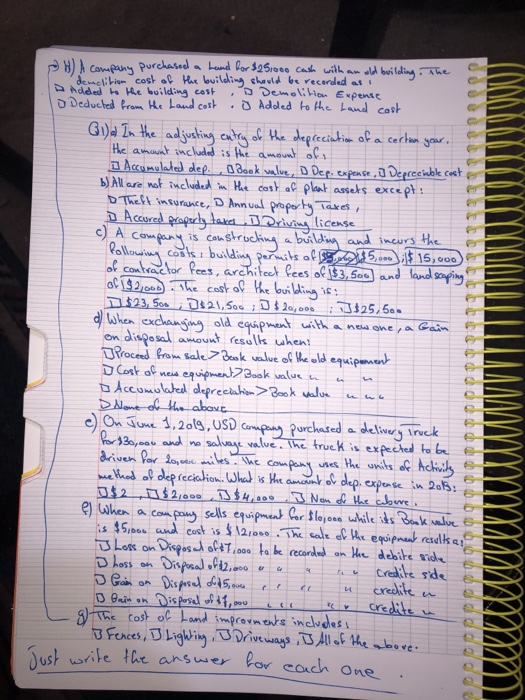 H) A company purchased a Land for $25,000 cash with an old building. The
demolition cost of the building should be recorded as:
Added to the building cost . Demolition Expense
Deducted from the Land cost . Added to the Land cost
Q1) a) In the adjusting entry of the depreciation of a certen year,
the amount included is the amount of:
Accumulated dep. , Book value, Dep. expense, Depreciable cost
b) All are not included in the cost of plant assets except:
Theft insurance, Annual property Taxes,
Accured property taxes Driving license
c) A company is constructing a building and incurs the
following costs: building permits of $5,000, $15,000
of contractor fees, architect fees of $3,500 and landscaping
of $2,000. The cost of the building is:
$23,500, $21,500; $20,000; $25,500
d) When exchanging old equipment with a new one, a Gain
on disposal amount results when:
Proceed from sale > Book value of the old equipment
Cost of new equipment > Book value " " "
Accumulated depreciation > Book value " " "
None of the above
e) On June 1, 2019, USD company purchased a delivery Truck
for $30,000 and no salvage value. The truck is expected to be
driven for miles. The company uses the units of Activity
method of depreciation. What is the amount of dep. expense in 2019:
$2 , $2,000, $4,000 Non of the above.
f) When a company sells equipment for $10,000 while its Book value
is $5,000 and cost is $12,000. The sale of the equipment results as:
Loss on Disposal of $7,000 to be recorded on the debite side
Loss on Disposal of $2,000 " " " " credite side
Gain on Disposal of $5,000 " " " credite "
Gain on Disposal of $7,000 " " " credite "
g) The cost of Land improvments includes:
Fences, Lighting, Driveways, All of the above.
Just write the answer for each one.